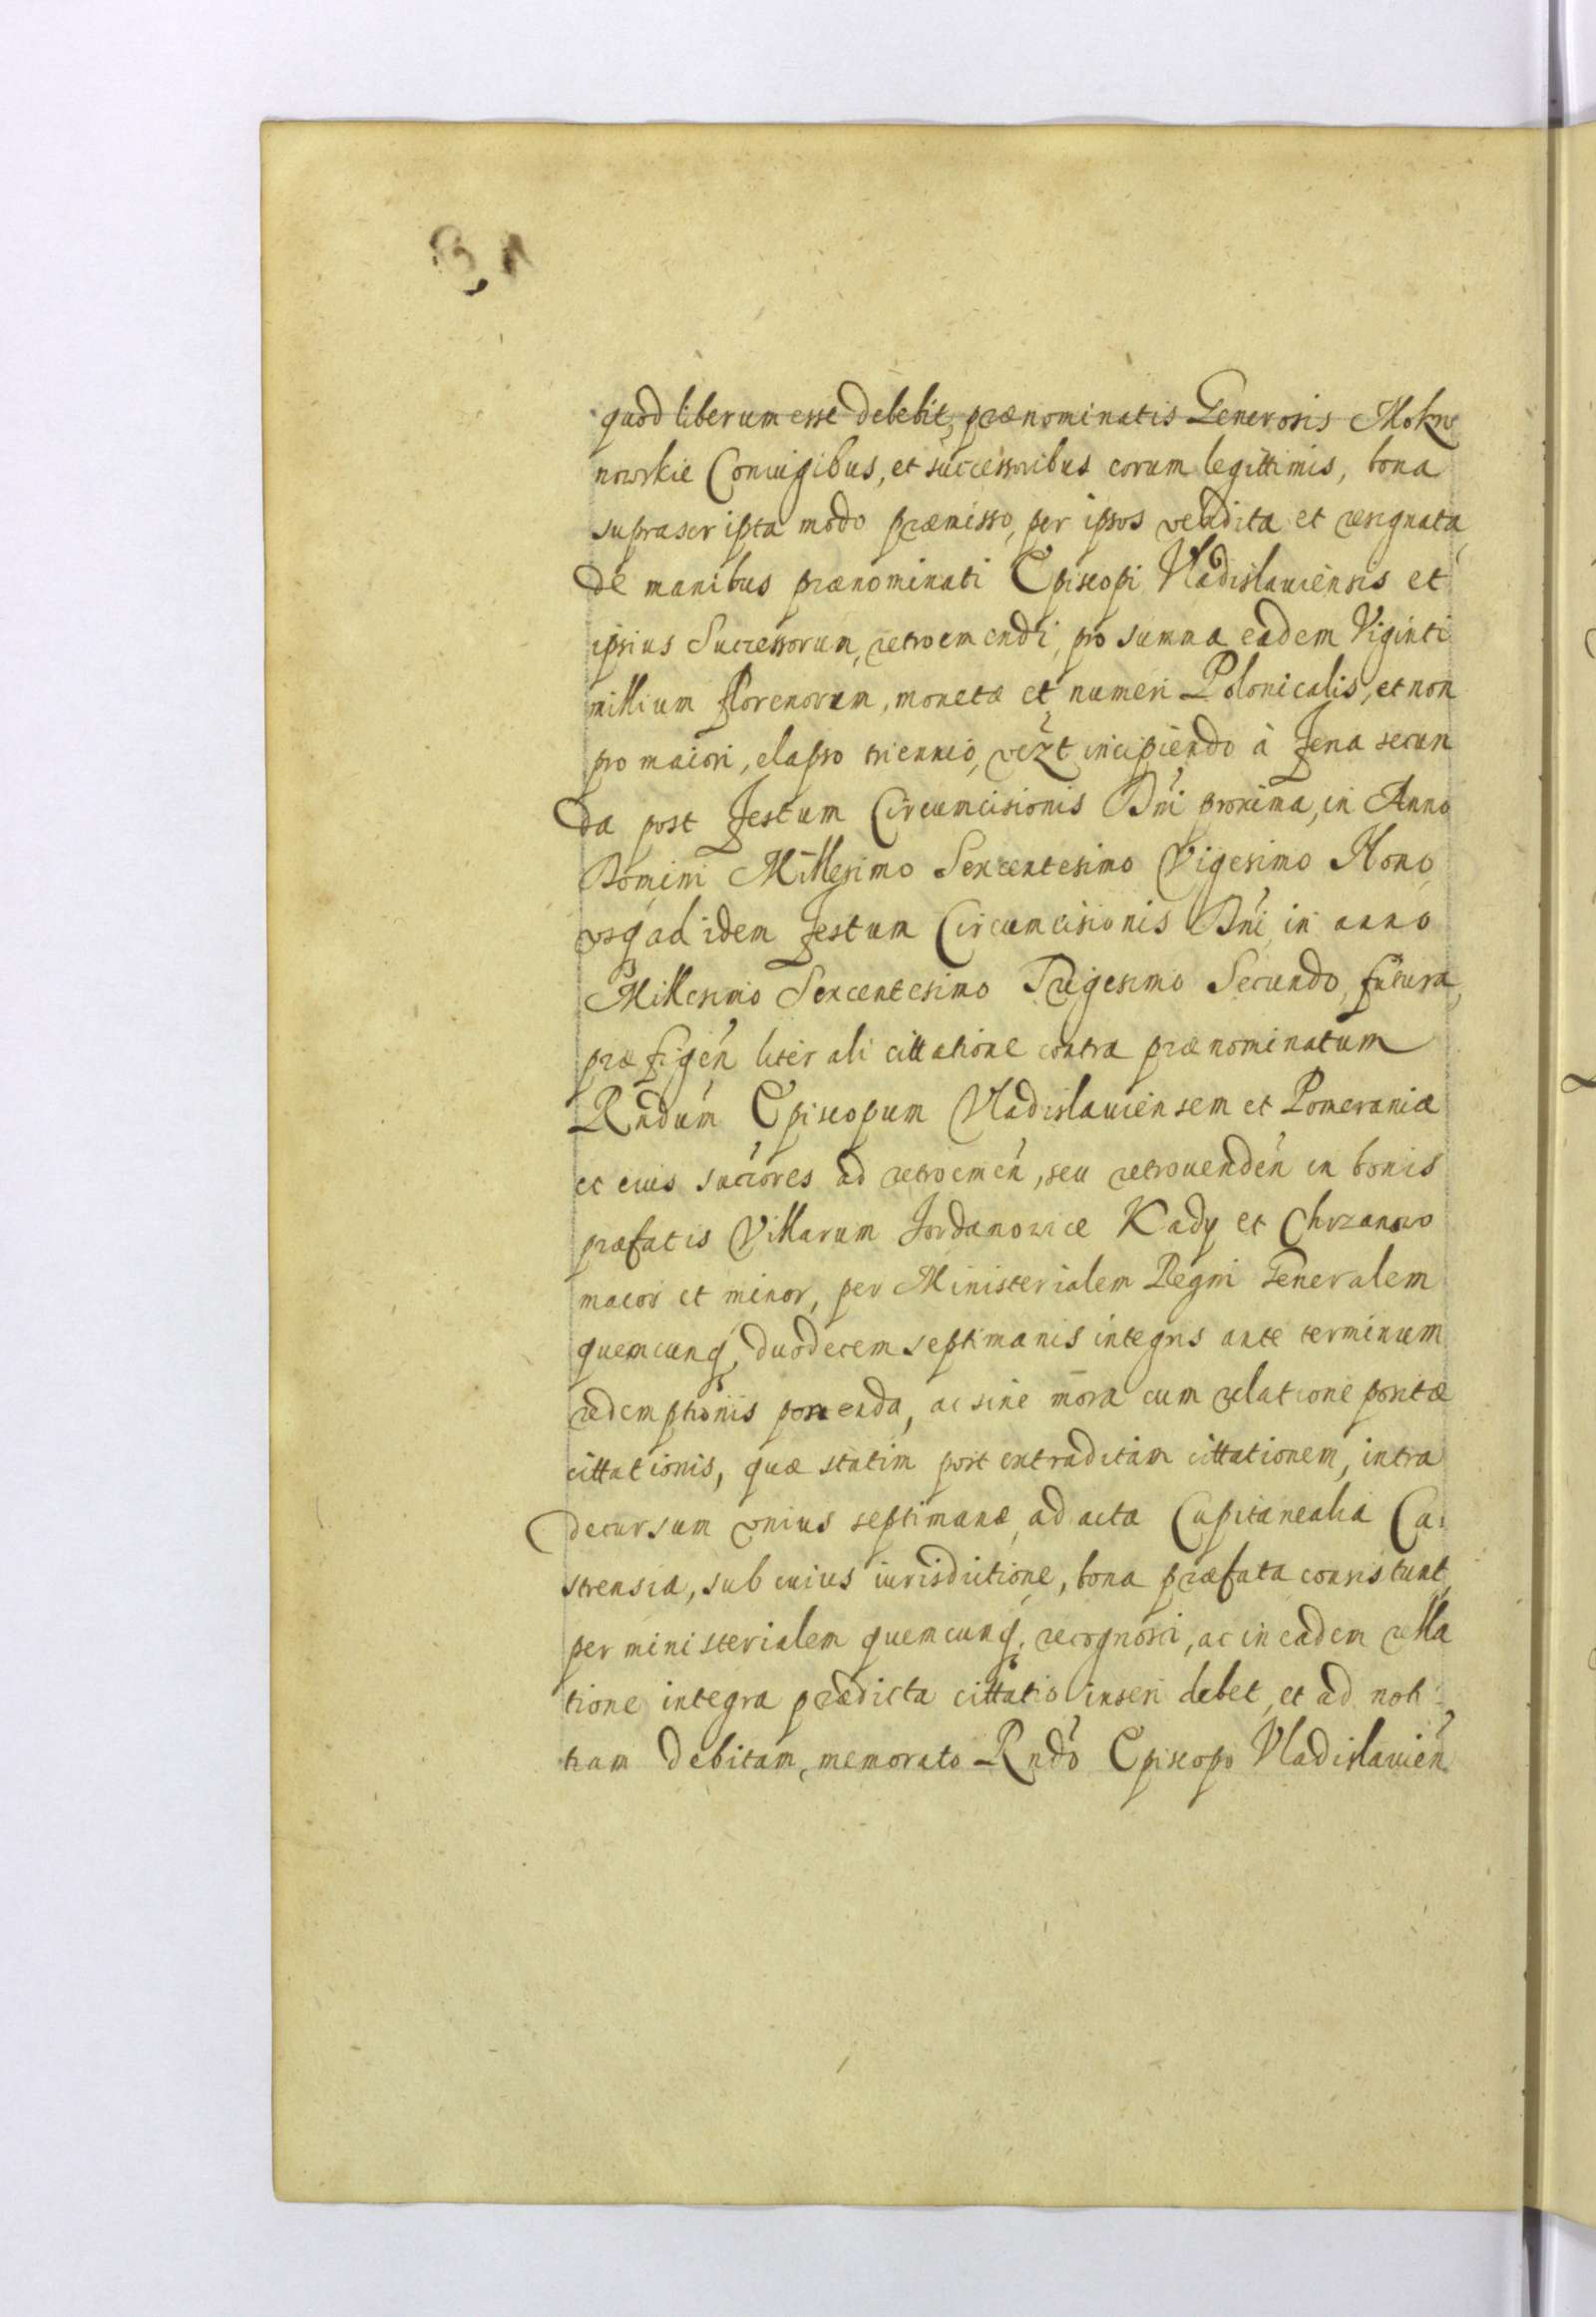 quod liberum esse debebit, prænominatis Generosis Mokro
nowskie Coniugibus, et successoribus eorum legittimis, bona
suprascripta modo præmisso, per ipsos vendita et resignata
de manibus prænominati Episcopi Vladislauiensis et
ipsius Successorum, retroemendi, pro summa eadem Viginti
millium florenorum, monetæ et numeri Polonicalis, et non
pro maiori, elapso triennio, vezt incipiendo à fena secun
da post festum Circumcisionis Dni proxima, in Anno
Domini Millesimo Sexcentesimo Vigesimo Nono
vsq ad idem festum Circumcisionis Dni in anno
Millesimo Sexcentesimo Trigesimo Secundo, futura,
præfigen literali cittatione contra prænominatum
Rndum Episcopum Vladislauiensem et Pomeraniæ
et eius succores ad retroemen, seu retrouenden in bonis
præfatis Villarum Jordanowice Kady et Chrzanowo
maior et minor, per Ministerialem Regni Generalem
quemcunq, duodecem septimanis integris ante terminum
redemptionis ponenda, ac sine mora cum relatione positæ
cittationis, quæ statim post extraditam cittationem, intra
decursum vnius septimanæ, ad acta Capitanealia Ca:
strensia, sub cuius iurisdictione, bona præfata consistunt,
per ministerialem quemcunq, recognosci, ac in eadem rella
tione integra prædicta cittatio inseri debet, et ad noti
tiam debitam, memorato Rndo Episcopo Vladislauien